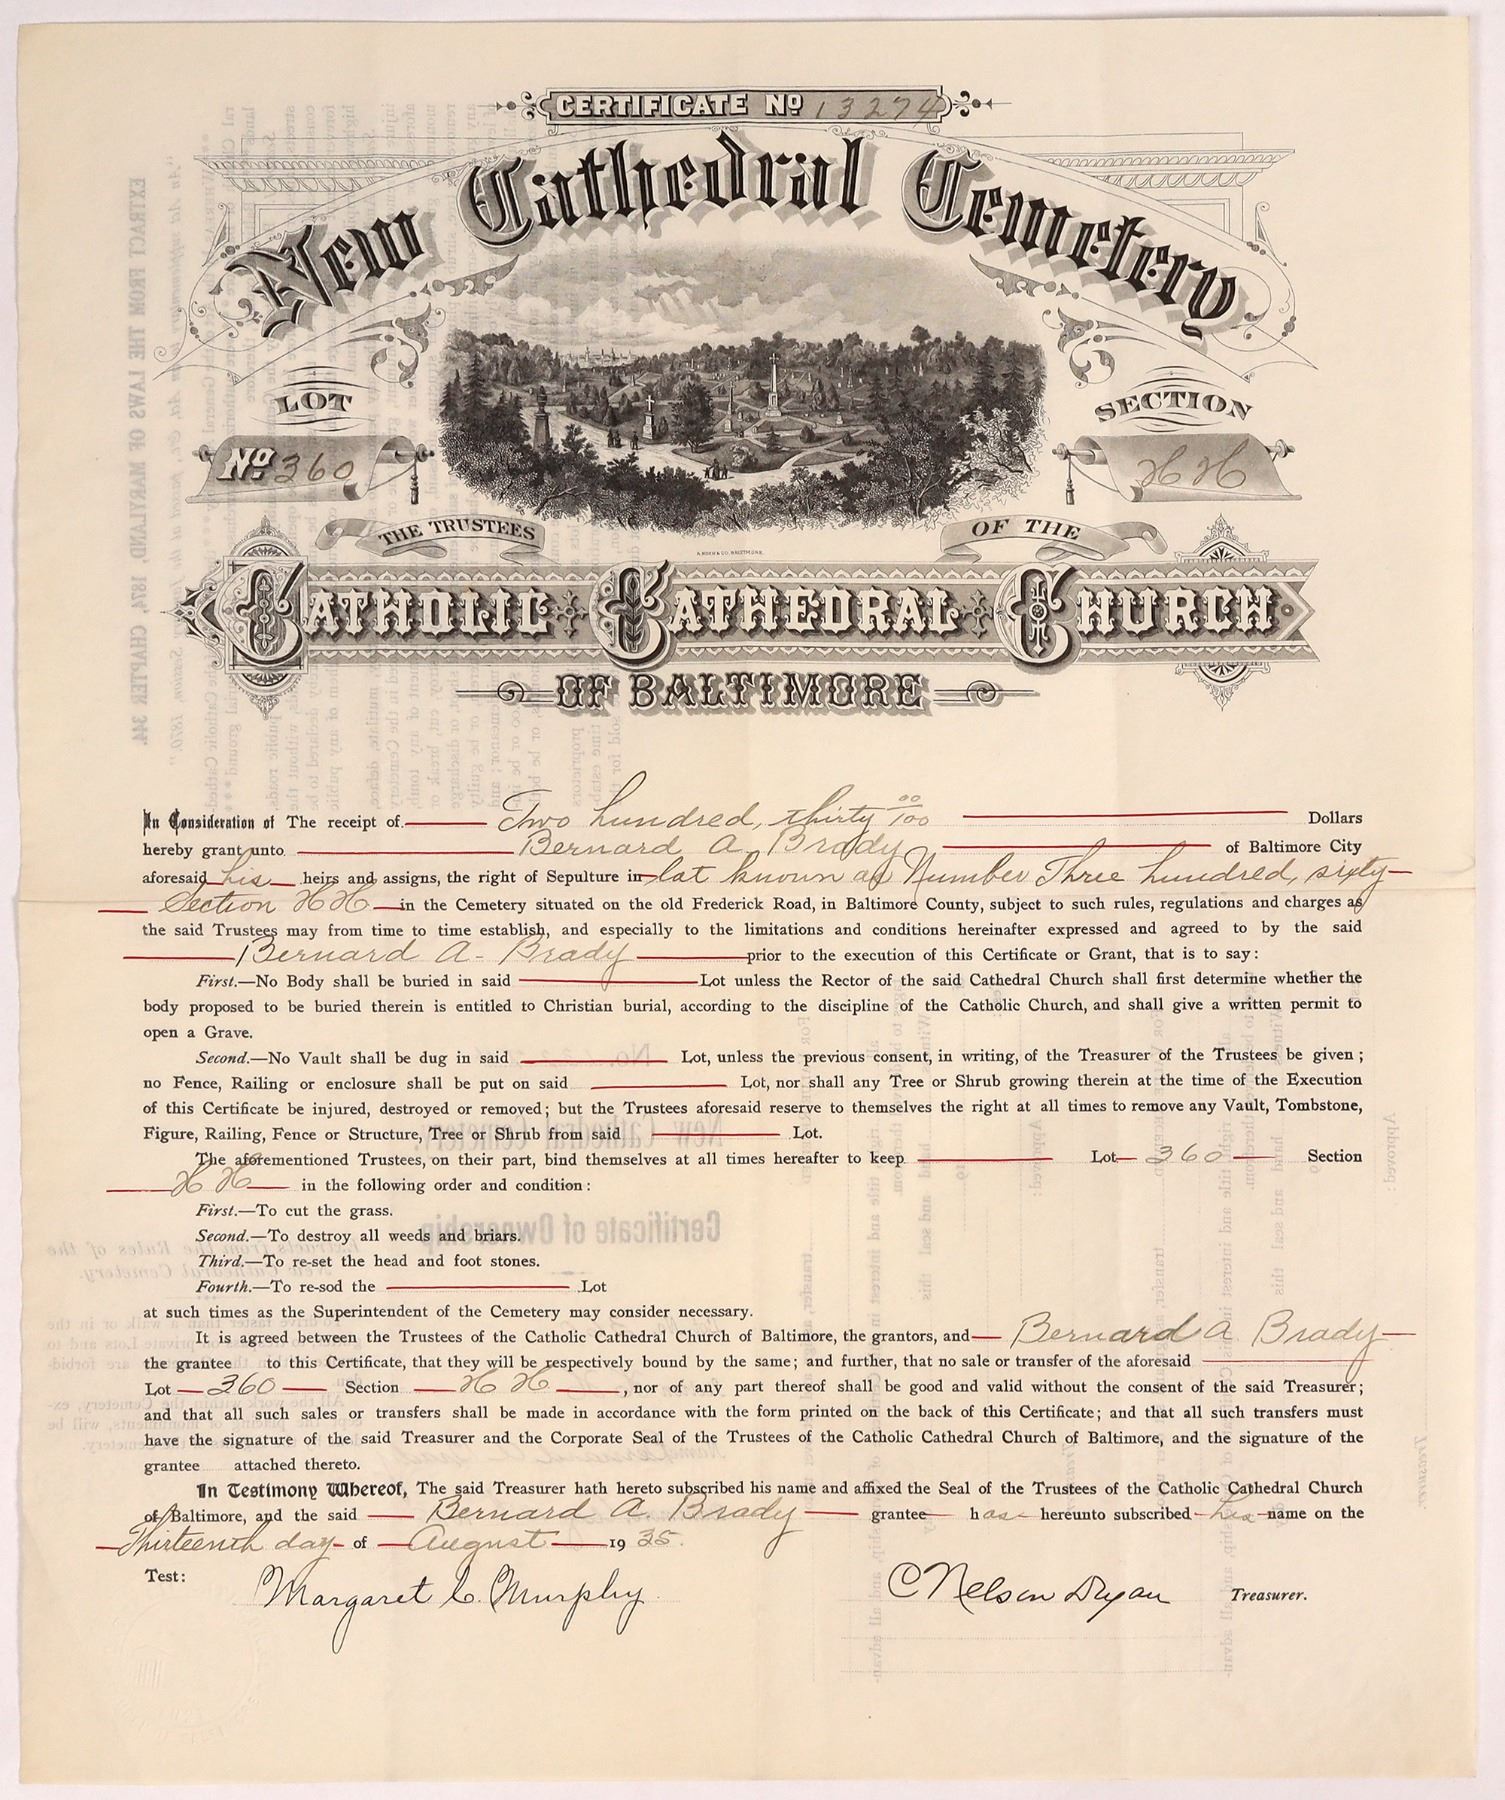 CERTIFICATE No 13274
New Cathedral Cemetery
LOT
No. 360
SECTION
HH
THE TRUSTEES OF THE
A. HOEN & CO. BALTIMORE.
CATHOLIC CATHEDRAL CHURCH
OF BALTIMORE
In Consideration of The receipt of Two hundred, thirty 00/100 Dollars
hereby grant unto Bernard A. Brady of Baltimore City
aforesaid his heirs and assigns, the right of Sepulture in lot known as Number Three hundred, sixty
Section HH in the Cemetery situated on the old Frederick Road, in Baltimore County, subject to such rules, regulations and charges as
the said Trustees may from time to time establish, and especially to the limitations and conditions hereinafter expressed and agreed to by the said
Bernard A. Brady prior to the execution of this Certificate or Grant, that is to say:
First.—No Body shall be buried in said Lot unless the Rector of the said Cathedral Church shall first determine whether the
body proposed to be buried therein is entitled to Christian burial, according to the discipline of the Catholic Church, and shall give a written permit to
open a Grave.
Second.—No Vault shall be dug in said Lot, unless the previous consent, in writing, of the Treasurer of the Trustees be given;
no Fence, Railing or enclosure shall be put on said Lot, nor shall any Tree or Shrub growing therein at the time of the Execution
of this Certificate be injured, destroyed or removed; but the Trustees aforesaid reserve to themselves the right at all times to remove any Vault, Tombstone,
Figure, Railing, Fence or Structure, Tree or Shrub from said Lot.
The aforementioned Trustees, on their part, bind themselves at all times hereafter to keep Lot 360 Section
HH in the following order and condition:
First.—To cut the grass.
Second.—To destroy all weeds and briars.
Third.—To re-set the head and foot stones.
Fourth.—To re-sod the Lot
at such times as the Superintendent of the Cemetery may consider necessary.
It is agreed between the Trustees of the Catholic Cathedral Church of Baltimore, the grantors, and Bernard A. Brady
the grantee to this Certificate, that they will be respectively bound by the same; and further, that no sale or transfer of the aforesaid
Lot 360 Section HH, nor of any part thereof shall be good and valid without the consent of the said Treasurer;
and that all such sales or transfers shall be made in accordance with the form printed on the back of this Certificate; and that all such transfers must
have the signature of the said Treasurer and the Corporate Seal of the Trustees of the Catholic Cathedral Church of Baltimore, and the signature of the
grantee attached thereto.
In Testimony Whereof, The said Treasurer hath hereto subscribed his name and affixed the Seal of the Trustees of the Catholic Cathedral Church
of Baltimore, and the said Bernard A. Brady grantee has hereunto subscribed his name on the
Thirteenth day of August 1935.
Test: Margaret C. Murphy C Nelson Dugan Treasurer.